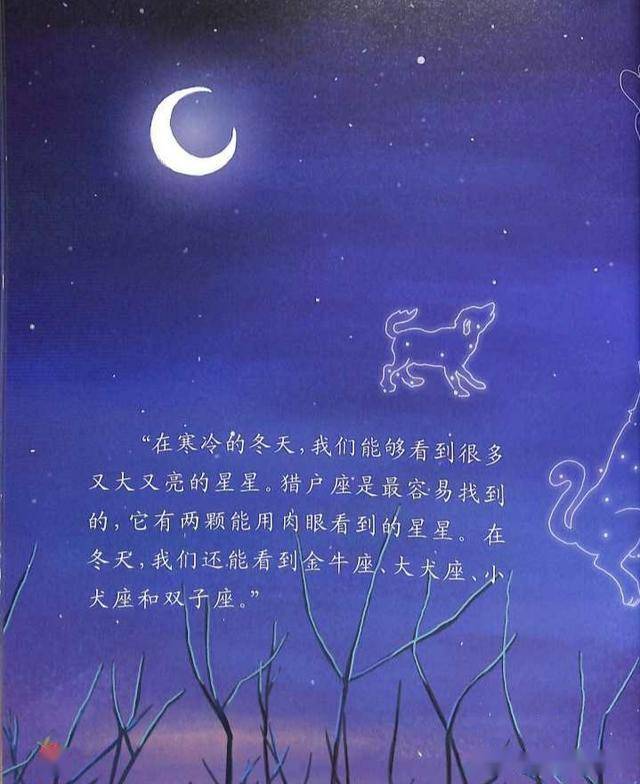 “在寒冷的冬天，我们能够看到很多
又大又亮的星星。猎户座是最容易找到
的，它有两颗能用肉眼看到的星星。在
冬天，我们还能看到金牛座、大犬座、小
犬座和双子座。”